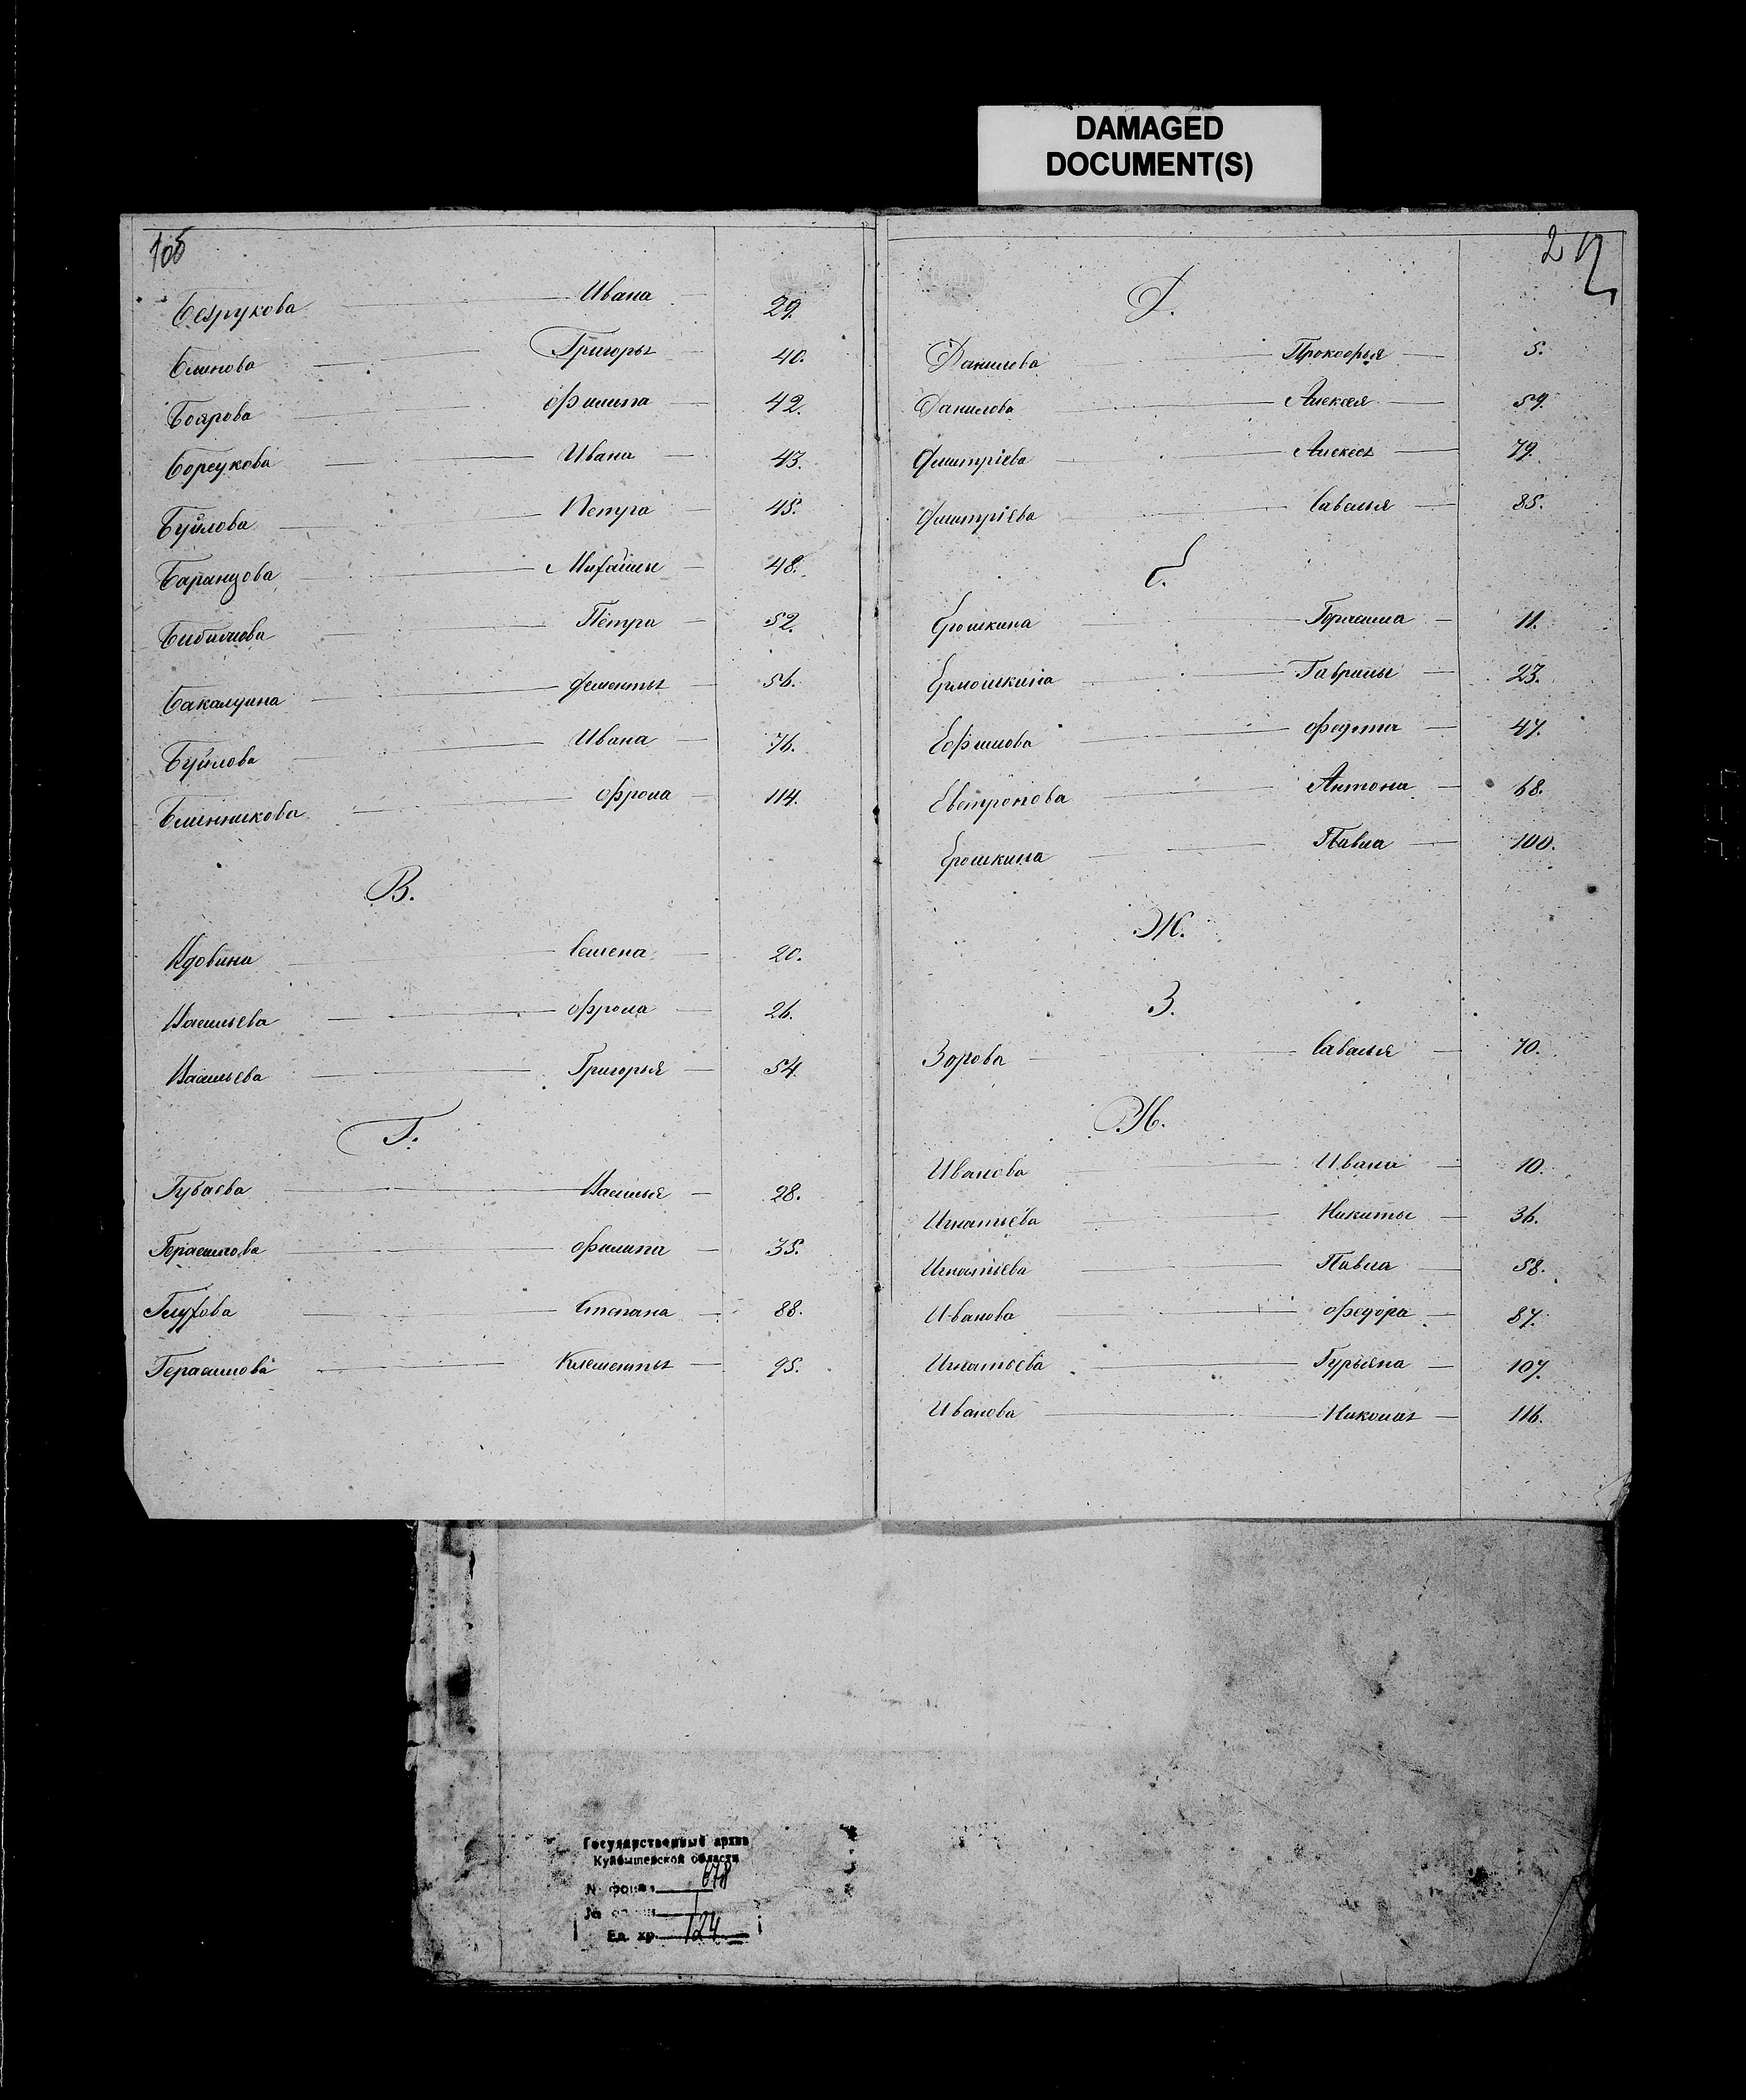 DAMAGED
DOCUMENT(S)
106
Безрукова Ивана 29.
Блинова Григорья 40.
Боярова Филипа 42.
Борсукова Ивана 43.
Буйлова Петра 45.
Баранцова Михайлы 48.
Бибикова Петра 52.
Бакалдина Дементья 56.
Буйлова Ивана 76.
Блинникова Фрола 114.
В.
Вдовина Семена 20.
Васильева Фрола 26.
Васильева Григорья 54.
Г.
Губаева Василья 28.
Герасимова Филипа 35.
Глухова Степана 88.
Герасимова Клементья 95.
2
Д.
Данилова Прокофья 5.
Данилова Алексея 59.
Дмитріева Алексея 79.
Дмитріева Савелья 85.
Е.
Ерошкина Герасима 11.
Ермошкина Гаврилы 23.
Ефимова Федота 47.
Евстропова Антона 68.
Ерошкина Павла 100.
Ж.
З.
Зорова Савелья 70.
И.
Иванова Ивана 10.
Игнатьева Никиты 36.
Игнатьева Павла 58.
Иванова Федора 87.
Игнатьева Гурьяна 107.
Иванова Николая 116.
Государственный архив
Куйбышевской области
№ фонда 678
№ описи
Ед. хр. 124